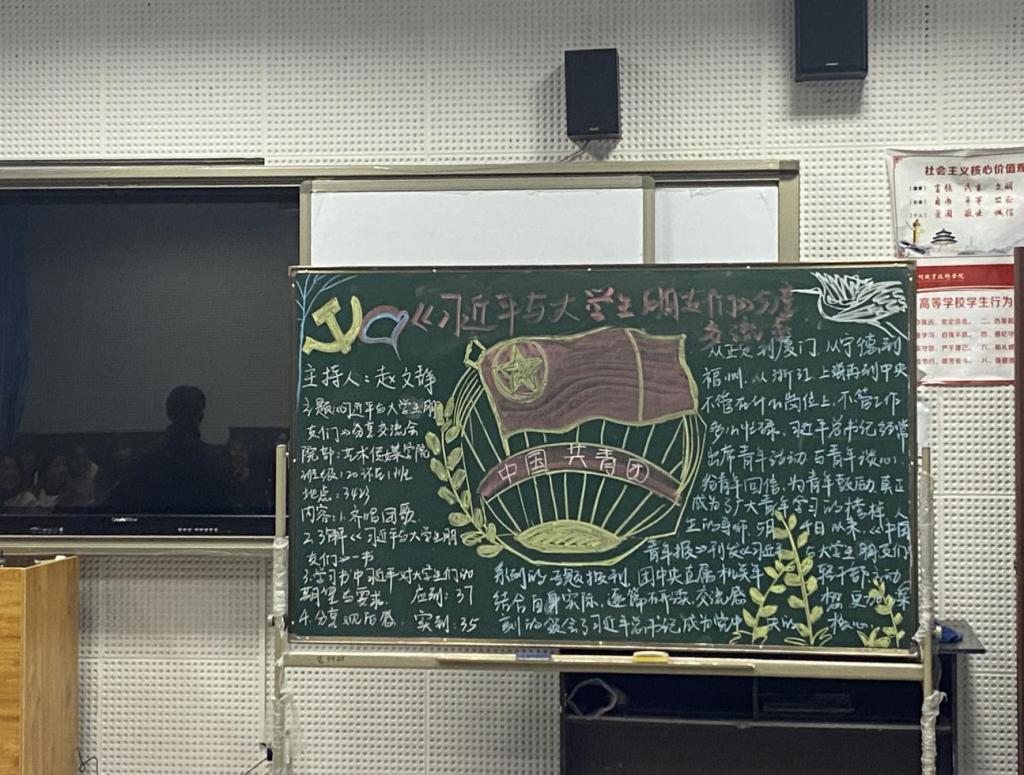 《习近平与大学生朋友们》分享
交流会
主持人:赵文静
主题:《习近平与大学生朋
友们》分享交流会
院部:艺术传媒学院
班级:20评品1班
地点:3423
内容:1.齐唱团歌
2.了解《习近平与大学生朋
友们》一书
3.学习书中习近平对大学生们的
期望与要求. 应到:37
4.分享观后感. 实到:35
中国共青团
从正定到厦门,从宁德到
福州,从浙江、上海再到中央
不管在什么岗位上,不管工作
多么忙碌,习近平总书记经常
出席青年活动,与青年谈心,
给青年回信,为青年鼓励,真正
成为了广大青年学习的榜样、人
生的导师.
日以来,《中国
青年报》刊发《习近平与大学生朋友们》
系列的专题报刊,团中央直属机关年
轻干部主动
结合自身实际,逐篇不间读、交流感
想,更加深
刻的领会了习近平总书记成为党中
央的
核心.
社会主义核心价值观
富强 民主 文明
自由 平等 公正
爱国 敬业 诚信
高等学校学生行为